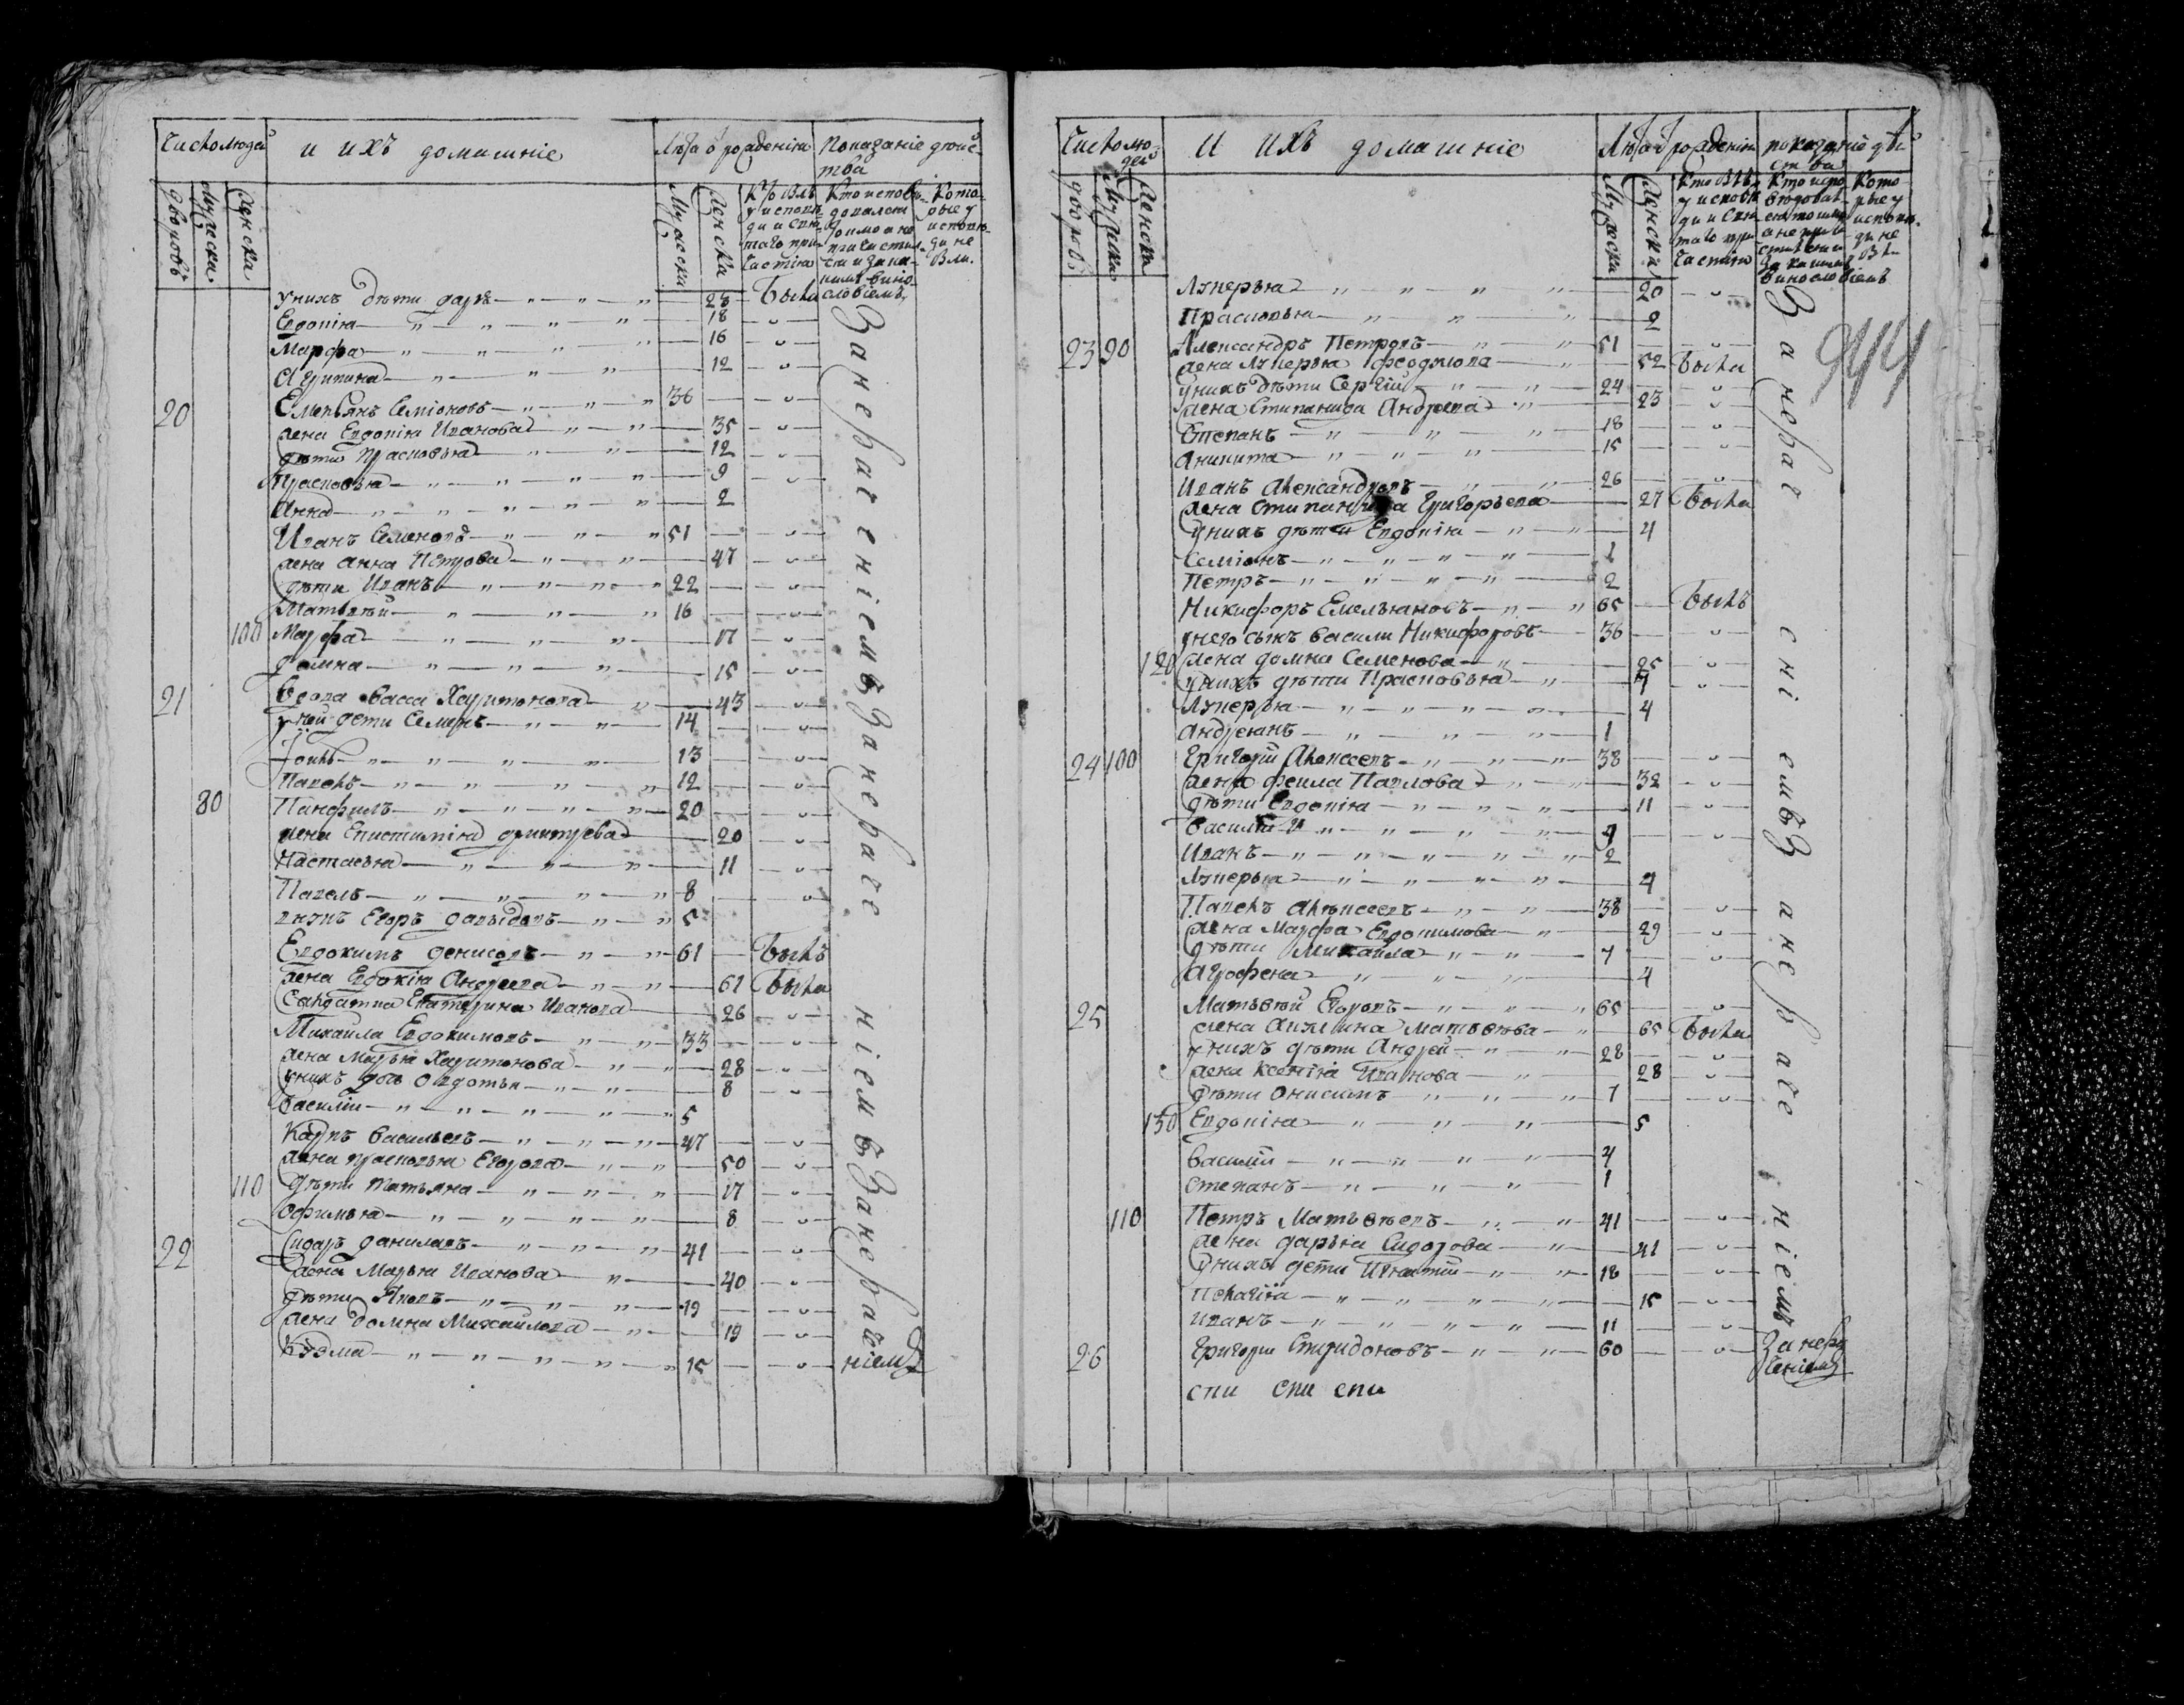 Число людей
и ихъ домашніе
Лѣта ѿ рожденія
показаніе дѣйс-
тва
дворовъ
мужеска
женска
мужеска
женска
Кто былъ
у исповѣ-
ди и свя-
таго при-
частія
Кто исповѣ-
довался
токмо а не
причастил-
ся и за ка-
кимъ вино-
словіемъ
Кото-
рые у
исповѣ-
ди не
были.
у нихъ дѣти дарья 28 была
Евдокія 18
Марфа 16
Агрипина 12
20 Емельянъ Семіоновъ 36
жена Евдокія Иванова 35
дѣти Прасковья 12
Прасковья 9
Анна 2
Иванъ Семеновъ 51
жена Анна Петрова 47
дѣти Иванъ 22
Матвѣй 16
100 Марфа 17
домна 15
21 Вдова васса Харитонова 43
у ней дети Семенъ 14
13
Павелъ 12
80 Панфилъ 20
жена Епистимія дмитрева 20
Настасья 11
Павелъ 8
внукъ Егоръ давыдовъ 5
Евдокимъ денисовъ 61 былъ
жена Евдокія Андреева 61 была
Салдатка Екатерина Иванова 26
Михайла Евдокимовъ 33
жена Марья Харитонова 28
у нихъ дочь Овдотья 8
Василій 5
Карпъ Васильевъ 47
жена прасковья Егорова 50
110 дѣти татьяна 17
Офимья 8
22 Сидаръ данилавъ 41
жена Марья Иванова 40
дѣти Яковъ 19
жена домна Михайлова 19
Козма 15
Занерачениемъ Занераче ниемъ Занерач
ніемъ
Число лю-
дей
и ихъ домашніе
Лѣта ѿ рожденія
показаніе дѣй
ства
дворовъ
мужеска
женска
мужеска
женска
Кто былъ
у исповѣ
ди и свя
таго при
частія
Кто испо
вѣдовал
ся токмо
а не при
частился
за какимъ
винословіемъ
Кото
рые у
исповѣ.
ди не
бы-
944
Лукерья 20
Прасковья 2
23 90 Александръ Петровъ 51
жена Лукерья 52 была
у нихъ дѣти Сергій 24
жена Стипанида Андреева 23
Степанъ 18
Аникита 15
Иванъ Александровъ 26
жена Стипанида Григорьева 27 была
у нихъ дѣти Евдокія 4
Семіонъ 1
Петръ 2
Никифоръ Емельяновъ 65 былъ
у него сынъ василй Никифоровъ 36
120 жена домна Семенова 25
у нихъ дѣти Прасковья 7
Лукерья 4
Андреянъ 1
24 100 Григорій Алексеевъ 38
жена феила Павлова 32
дѣти Евдокія 11
Василій 9
Иванъ 2
Лукерья 4
Павелъ Алексеевъ 38
жена Марфа Евдокимова 29
дѣти Михайла 7
Агрофена 4
25 Матьвѣй Егоровъ 65
жена Акилина Матьвѣева 65 была
у нихъ дѣти Андрей 28
жена Ксенія Иванова 28
дѣти Онисимъ 7
130 Евдокія 5
василій 4
степанъ 1
110 Петръ Матьвѣевъ 41
жена дарья Сидорова 41
у нихъ дети Игнатій 18
Пелагія 15
иванъ 11
26 Григорій Спиридоновъ 60
Занерач ені емъ Занераче ніемъ
Занера
ченіемъ
спи спи спи